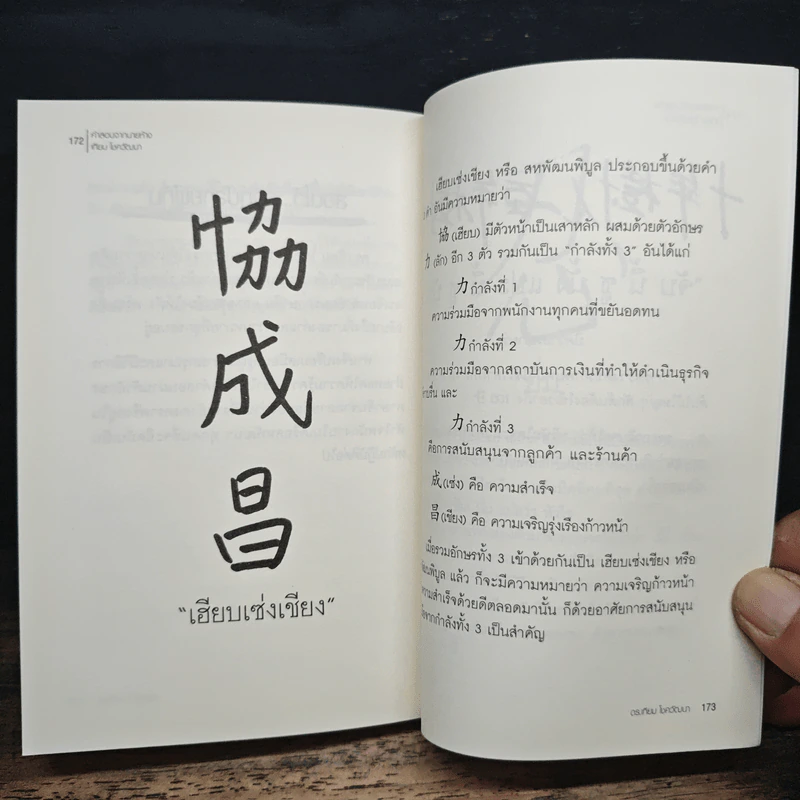 172
คำสอนจากนายห้าง
เทียม โชควัฒนา
協
成
昌
"เฮียบเซ่งเชียง"
เฮียบเซ่งเชียง หรือ สหพัฒนพิบูล ประกอบขึ้นด้วยคำ
คำ อันมีความหมายว่า
協 (เฮียบ) มีตัวหน้าเป็นเสาหลัก ผสมด้วยตัวอักษร
力 (ลัก) อีก 3 ตัว รวมกันเป็น "กำลังทั้ง 3" อันได้แก่
力 กำลังที่ 1
ความร่วมมือจากพนักงานทุกคนที่ขยันอดทน
力 กำลังที่ 2
ความร่วมมือจากสถาบันการเงินที่ทำให้ดำเนินธุรกิจ
และ
力 กำลังที่ 3
คือการสนับสนุนจากลูกค้า และร้านค้า
成 (เซ่ง) คือ ความสำเร็จ
昌 (เชียง) คือ ความเจริญรุ่งเรืองก้าวหน้า
เมื่อรวมอักษรทั้ง 3 เข้าด้วยกันเป็น เฮียบเซ่งเชียง หรือ
แล้ว ก็จะมีความหมายว่า ความเจริญก้าวหน้า
ความสำเร็จด้วยดีตลอดมานั้น ก็ด้วยอาศัยการสนับสนุน
จากกำลังทั้ง 3 เป็นสำคัญ
ดร.เทียม โชควัฒนา 173